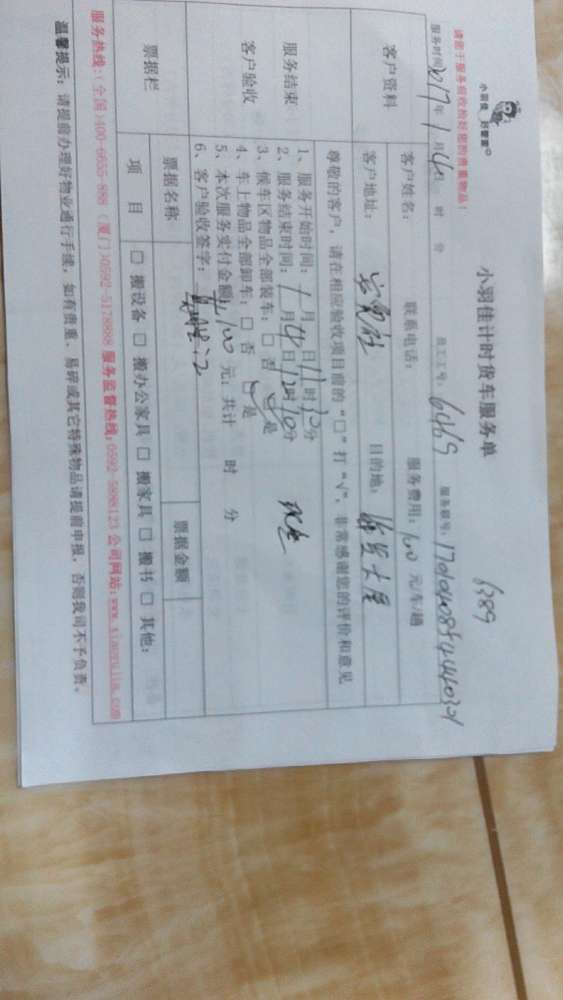 小羽佳 好管家
小羽佳计时货车服务单
6389
请您于服务前收拾好您的贵重物品!
服务时间: 2017年1月4日 时 分 员工工号: 6469 服务联号: 17010408544440321
客户资料
客户姓名: 联系电话: 服务费用: 100 元/车/趟
客户地址: 目的地:
服务结束
客户验收
尊敬的客户, 请在相应验收项目前的“□”打“√”, 非常感谢您的评价和意见
1、服务开始时间: 1月 日11时30分
2、服务结束时间: 1月4日12时10分
3、候车区物品全部装车: □否 ☑是
4、车上物品全部卸车: □否 ☑是
5、本次服务实付金额: 100元, 共计 时 分
6、客户验收签字:
票据栏
票据名称 票据金额
项目 □搬设备 □搬办公家具 □搬家具 □搬书 □其他:
服务热线:(全国)400-6655-888 (厦门)0592-5178888 服务监督热线:0592-5898123 公司网站:www.xiaoyujia.com
温馨提示: 请提前办理好物业通行手续, 如有贵重、易碎或其它特殊物品请提前申报, 否则我司不予负责。